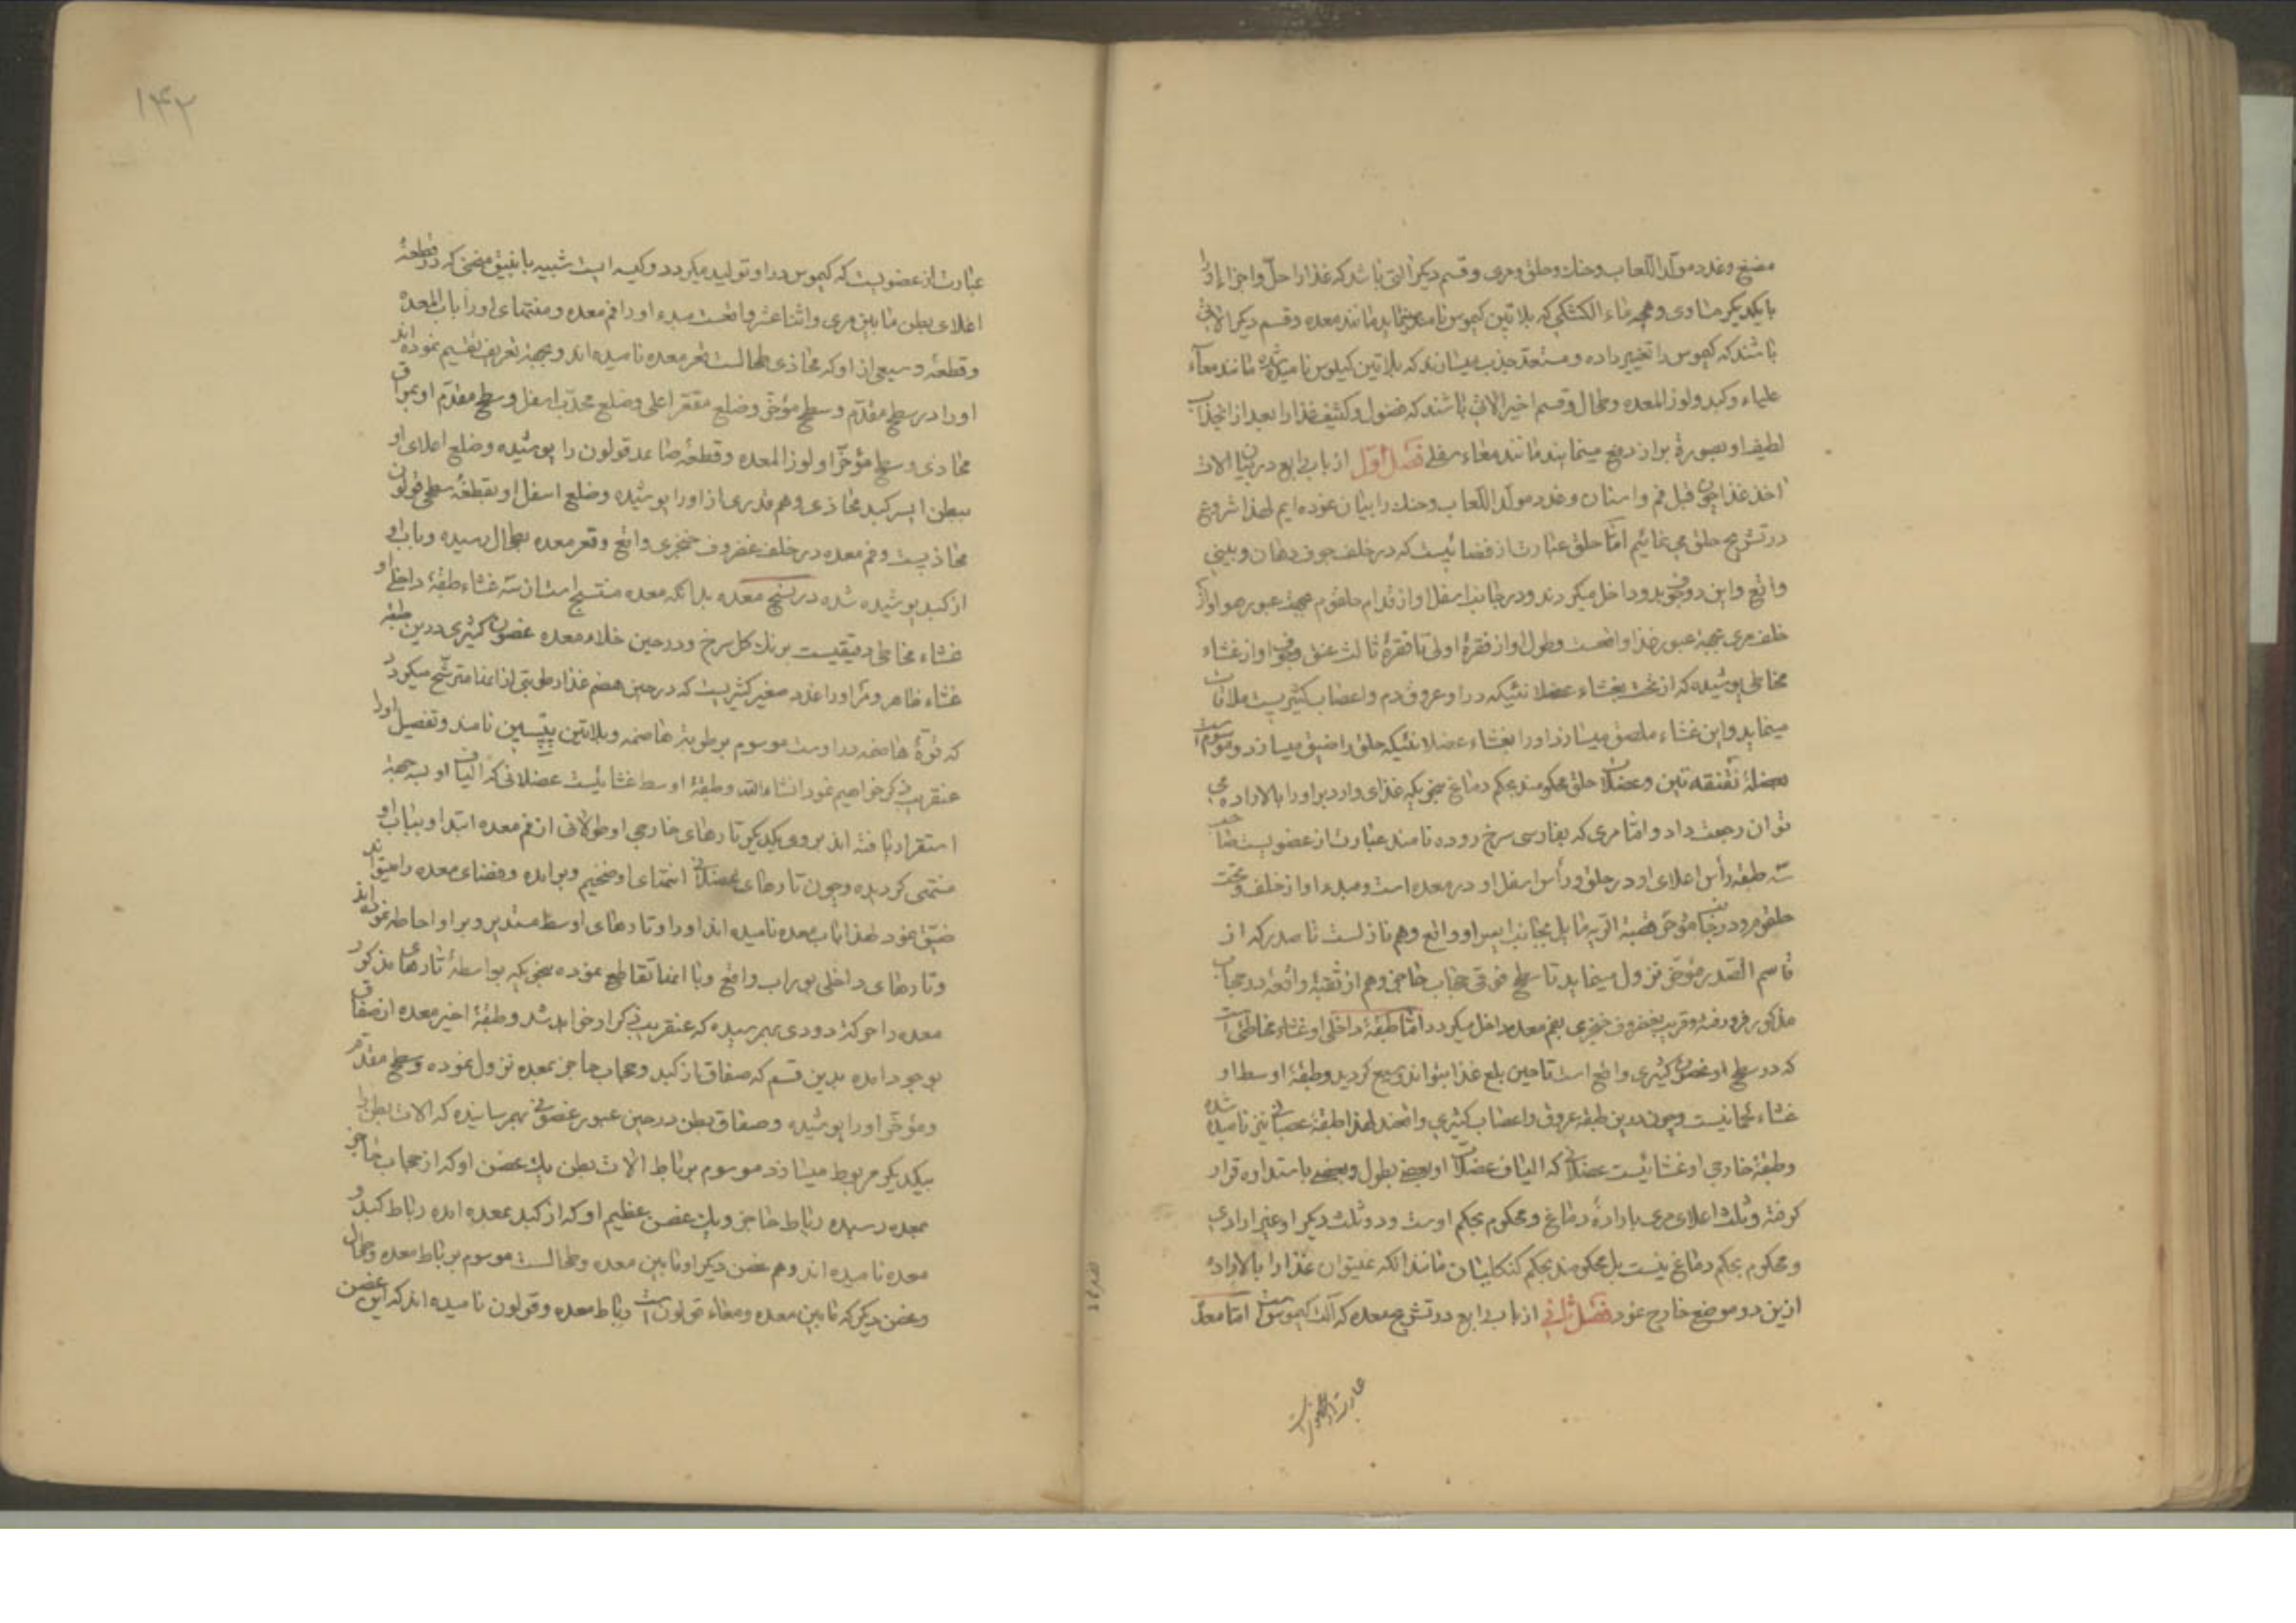 مضغ و غدد مولد اللعاب و حنک و حلق و مری و قسم دیکر آلتی باشد که غذا را حل و اجزاء او را
با یکدیکر مساوی و همچه ماء الکشکی که بلاتین کیموس نامند مینماید مانند معده و قسم دیکر آلات
باشند که کیموس را تغییر داده و مستعد جذب میسازند که بلاتین کیلوس نامیده شده مانند معاء
علیاء و کبد و لوز المعده و طحال و قسم اخیر الاتی باشند که فضول و کثیف غذا را بعد از انجذاب
لطیف او بصورة براز دفع مینمایند مانند معاء سفلی فصل اول از باب رابع در بیان الات
اخذ غذا چون قبل فم و اسنان و غدد مولد اللعاب و حنک را بیان نموده ایم لهذا شروع
در تشریح حلق می نمائیم اما حلق عبارت از فضائیست که در خلف جوف دهان و بینی
واقع و این دو تجویف بدو داخل میکردند و در جانب اسفل او از قدام حلقوم بجهة عبور هوا و از
خلف مری بجهة عبور غذا واقعست و طول او از فقرۀ اولی تا فقرۀ ثالث عنق و جوف او از غشاء
مخاطی پوشیده که از تحت بغشاء عضلانئیکه در او عروق دم و اعصاب کثیریست ملاقات
مینماید و این غشاء ملصق میسازد او را بغشاء عضلانئیکه حلق را ضیق میسازد و موسوم است
بعضلۀ تقنقه تین و عضلات حلق محکومند بحکم دماغ بنحویکه غذای وارد بر او را بالاراده می
توان رجعت داد و اما مری که بفارسی سرخ روده نامند عبارت از عضویست صاحب
سه طبقه رأس اعلای او در حلق و رأس اسفل او در معده است و مبدء او از خلف و تحت
حلقوم و در جانب مؤخر قصبة الریه مایل بجانب ایسر او واقع و هم نازلست تا صدر که از
قاسم الصدر مؤخر نزول مینماید تا سطح فوقی حجاب حاجز و هم از ثقبۀ واقعه در حجاب
مذکور فرو رفته و قریب بغضروف خنجری بفم معده داخل میکردد اما طبقۀ داخلی او غشاء مخاطی است
که در سطح او غضون کثیری واقع است تا حین بلع غذا بتواند وسیع کردید و طبقۀ اوسط او
غشاء لحمانیست و چون در این طبقه عروق و اعصاب کثیری واقعند لهذا طبقۀ عصبانی نیز نامیده شده
و طبقۀ خارجی او غشائیست عضلانی که الیاف عضلات او بعضی بطول و بعضی باستداره قرار
کرفته و ثلث اعلای مری بارادۀ دماغ و محکوم بحکم اوست و دو ثلث دیکر او غیر ارادی
و محکوم بحکم دماغ نیست بل محکومند بحکم کنکلیتان مانند انکه نمیتوان غذا را بالاراده
از این دو موضع خارج نمود فصل ثانی از باب رابع در تشریح معده که آلت کیموس است اما معده
عبارت از عضوی است
۱۴۲
عبارت از عضویست که کیموس در او تولید میکردد و کیسه ایست شبیه بانبیق منحنی که در قطعۀ
اعلای بطن مابین مری و اثنا عشر واقعست مبدء او را فم معده و منتهای او را باب المعده
و قطعۀ وسیعی از او که محاذی طحالست قعر معده نامیده اند و بجهة تعریف تقسیم نموده اند
او را در سطح مقدم و سطح مؤخر و ضلع مقعر اعلی و ضلع محدب اسفل و سطح مقدم او بمراق
محاذی و سطح مؤخر او لوز المعده و قطعۀ صاعد قولون را پوشیده و ضلع اعلای او
ببطن ایسر کبد محاذی و هم قدری از او را پوشیده و ضلع اسفل او بقطعۀ سطحی قولون
محاذیست و فم معده در خلف غضروف خنجری واقع و قعر معده بطحال رسیده و باب او
از کبد پوشیده شده در نسج معده بدانکه معده منتسج است از سه غشاء طبقۀ داخلی او
غشاء مخاطی دقیقیست برنک کل سرخ و در حین خلاء معده غضون کثیری در این طبقه
غشاء ظاهر و مر او را غدد صغیر کثیریست که در حین هضم غذا رطوبتی از انها مترشح میکردد
که قوۀ هاضمه در اوست موسوم برطوبة هاضمه و بلاتین پپسین نامند و تفصیل او را
عنقریب ذکر خواهیم نمود انشاء الله و طبقۀ اوسط غشائیست عضلانی که الیاف او بسه جهة
استقرار یافته اند بر روی یکدیکر تارهای خارجی او طولانی از فم معده ابتدا و بباب او
منتهی کردیده و چون تارهای عضلانی انتهای او ضخیم و بر امده و فضای معده را میتواند
ضیق نمود لهذا باب معده نامیده اند او را و تارهای اوسط مستدیر و بر او احاطه نموده اند
و تارهای داخلی بوراب واقع و با انها تقاطع نموده بنحویکه بواسطۀ تارهای مذکور
معده را حرکة دودی بهم رسیده که عنقریب ذکر او خواهد شد و طبقۀ اخیر معده از صفاق
بوجود امده بدین قسم که صفاق از کبد و حجاب حاجز بمعده نزول نموده و سطح مقدم
و مؤخر او را پوشیده و صفاق بطن در حین عبور غضونی بهم رسانیده که الات بطن را
بیکدیکر مربوط میسازد موسوم برباط الات بطن یک غضن او که از حجاب حاجز
بمعده رسیده رباط حاجز و یک غضن عظیم او که از کبد بمعده امده رباط کبد و
معده نامیده اند و هم غضن دیکر او مابین معده و طحالست موسوم برباط معده و طحال
و غضن دیکر که مابین معده و معاء قولون است رباط معده و قولون نامیده اند که این غضن